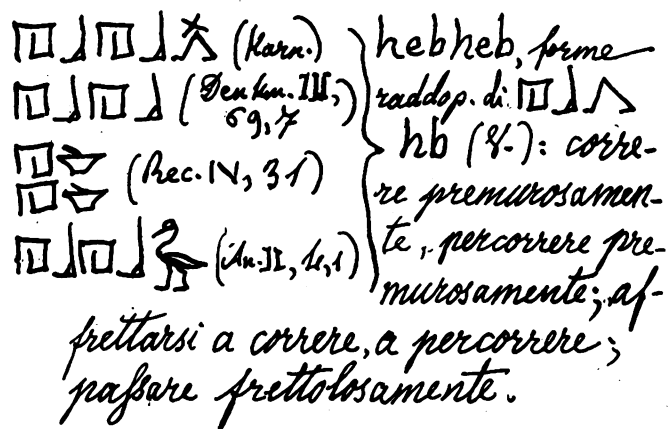 𓉔𓃀𓉔𓃀𓏴𓂻 (Karn.)
𓉔𓃀𓉔𓃀 (Denkm. III,
69,7)
𓉔𓎟
𓉔𓎟 (Rec. IV, 31)
𓉔𓃀𓉔𓃀 (An. II,
hebheb, forme
raddop. di 𓉔𓃀𓂻
hb (V.): corre-
re premurosamen-
te, percorrere pre-
murosamente; af-
frettarsi a correre, a percorrere;
paſsare frettolosamente.